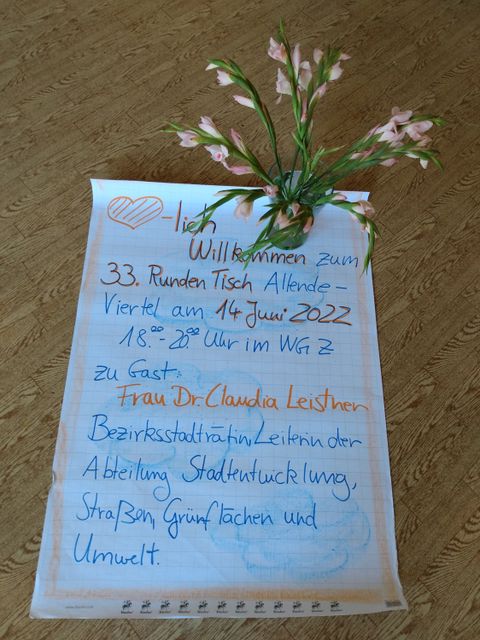 -lich
Willkommen zum
33. Runden Tisch Allende-
Viertel am 14 Juni 2022
18.00-20.00 Uhr im WGZ
zu Gast:
Frau Dr. Claudia Leistner
Bezirksstadträtin, Leiterin der
Abteilung Stadtentwicklung,
Straßen, Grünflächen und
Umwelt.